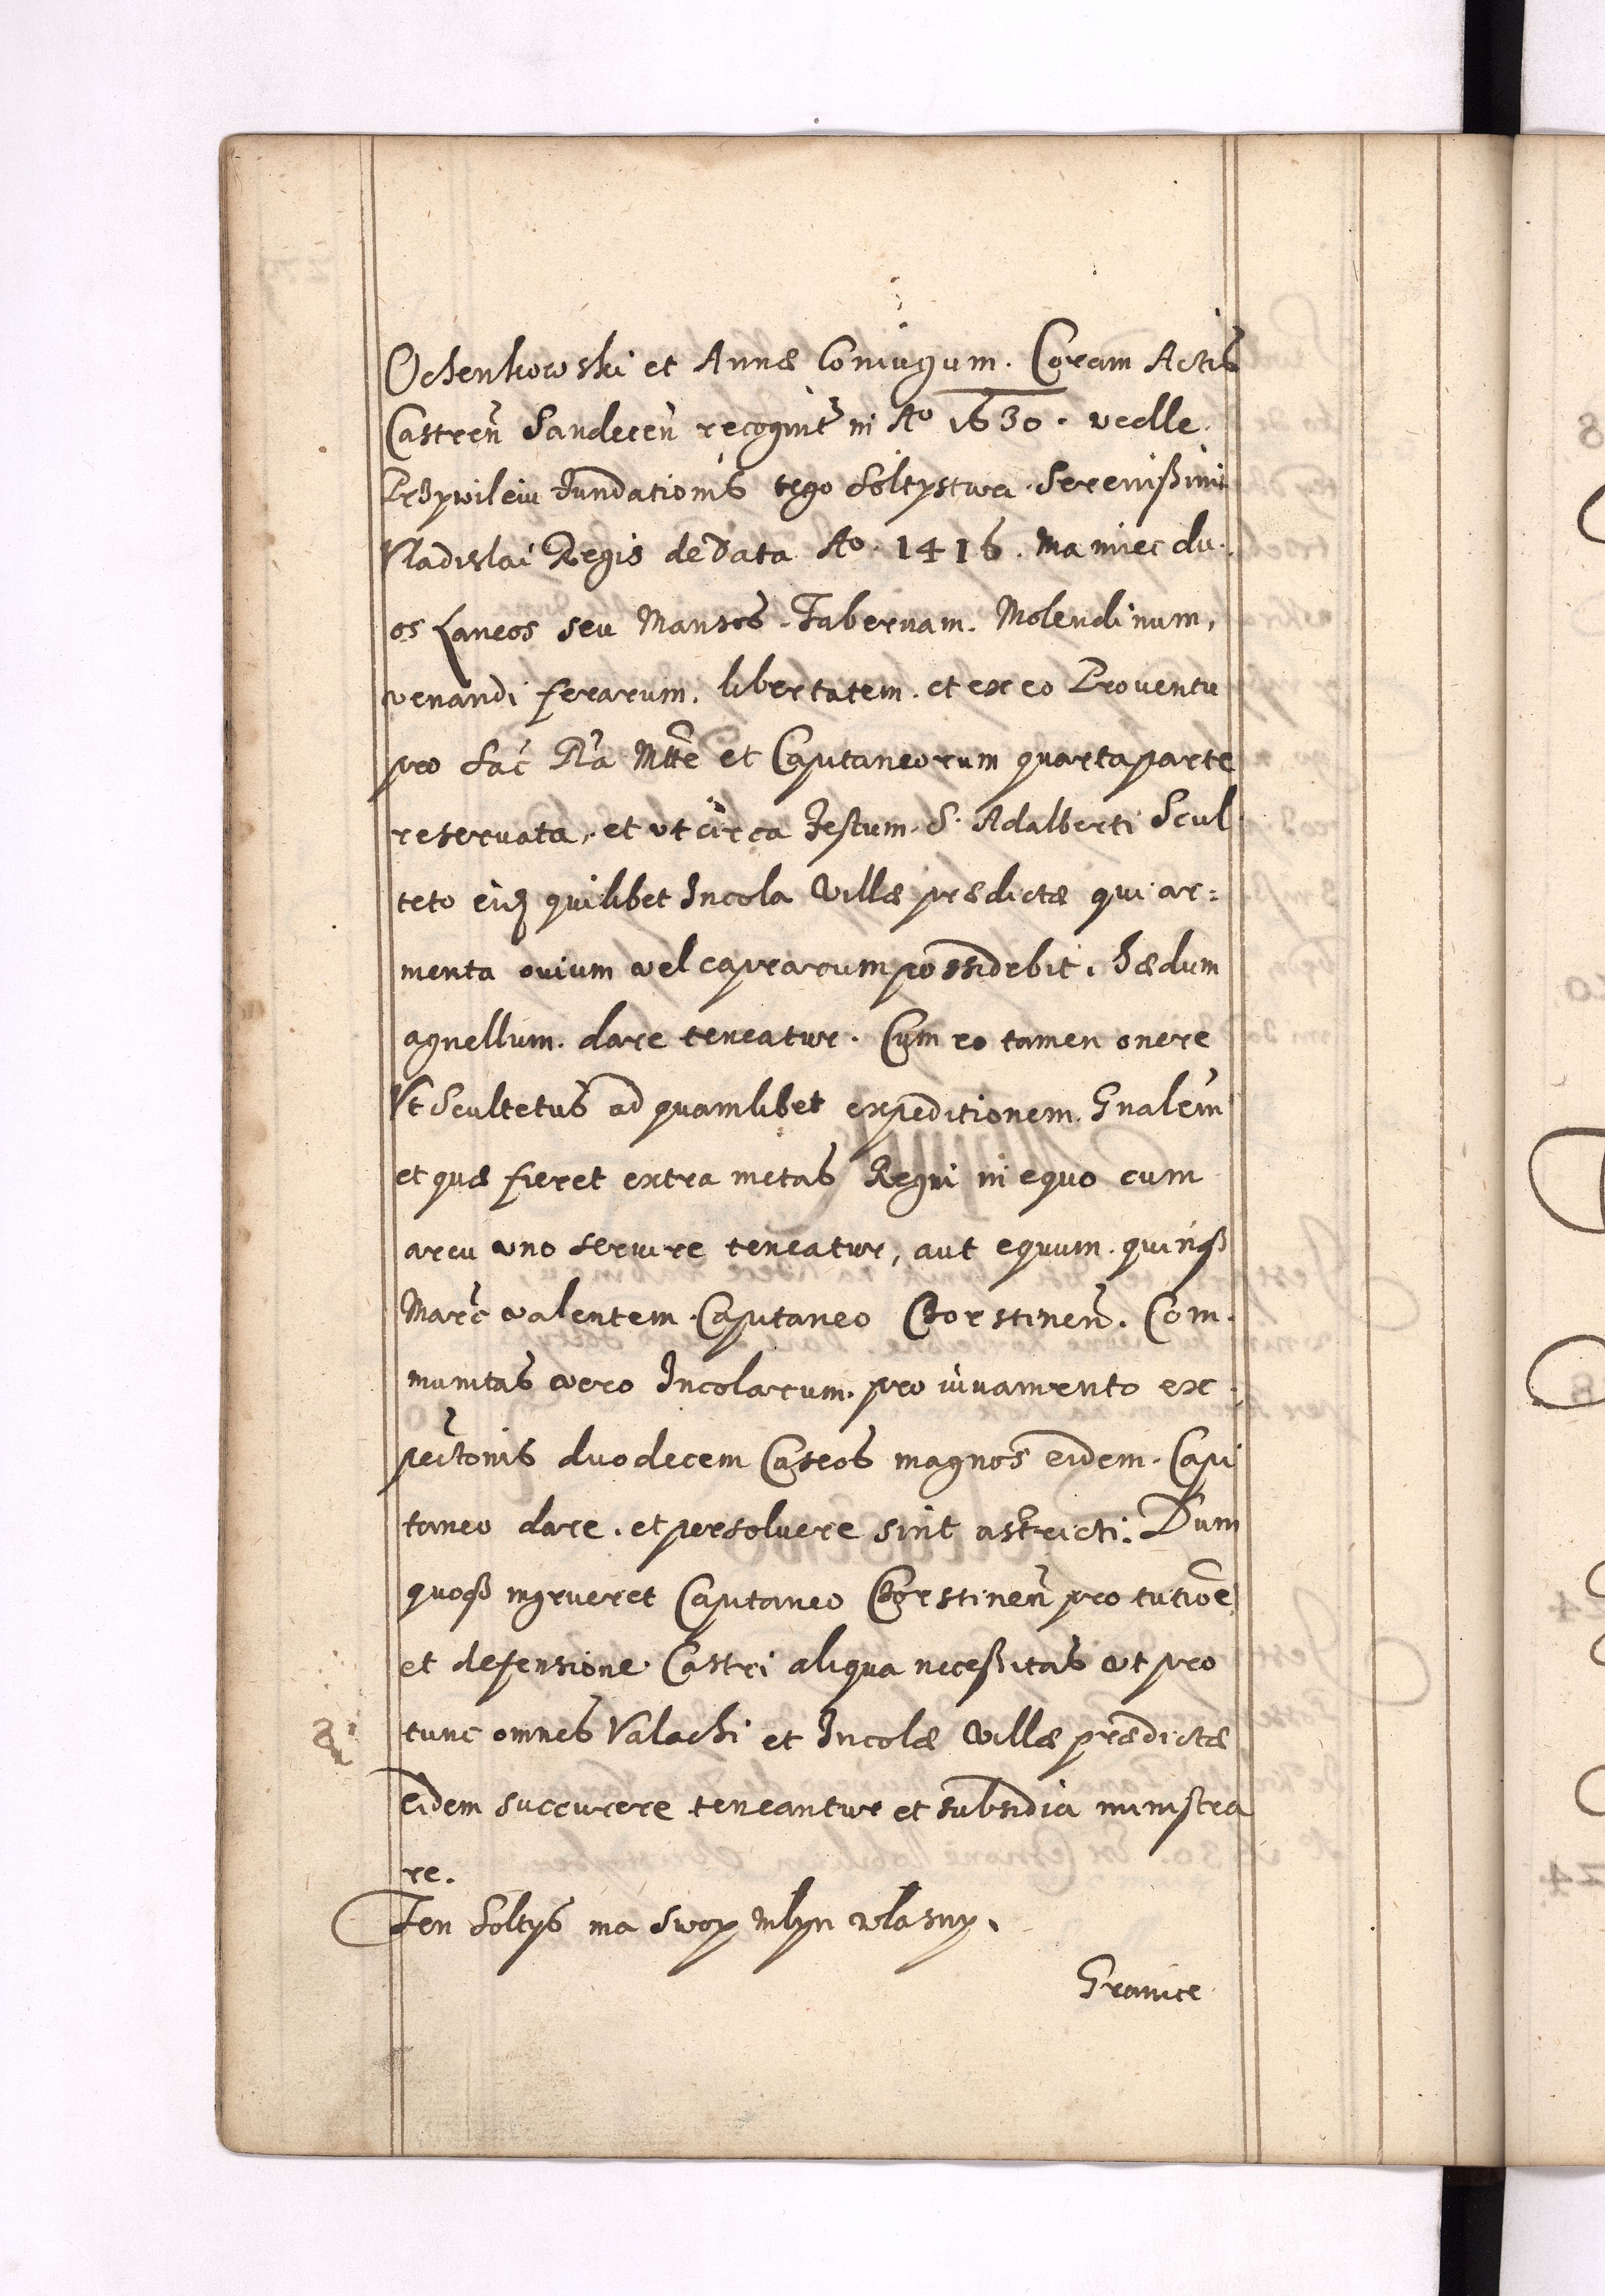 Ochenkowski et Annæ Coniugum. Coram Actis
Castreñ Sandeceñ recognit̃ in Ao 1630. vedlle
Przywileiu Fundationis tego Soltystwa. Serenißimi
Vladislai Regis de Data Ao. 1416. ma miec du.
os Laneos seu Mansos. Tabernam. Molendinum,
venandi ferarum. libertatem. et ex eo Proventu
pro Sac̃ Ra Mtte et Capitaneorum quarta parte
reservata, et ut circa Festum. S. Adalberti Scul
teto eid quilibet Incola Villæ prædictæ qui ar:
menta ovium vel caprarum possidebit. Hædum
agnellum. dare teneatur. Cum eo tamen onere
Vt Scultetus ad quamlibet expeditionem. Gnalem
et quæ fieret extra metas Regni in equo cum
arcu uno servire teneatur, aut equum. quinqз
Marc̃ valentem. Capitaneo Czorstineñ. Com.
munitas vero Incolarum. pro iuvamento ex.
peditonis duodecem Caseos magnos eidem. Capi
taneo dare. et persolvere sint astricti. Dum
quoqз ingrueret Capitaneo Czorstineñ pro tutioe
et defensione Castri aliqua neceßitas ut pro
tunc omnes Valachi et Incolæ Villæ prædictæ
Eidem succurere teneantur et subsidia ministra
re.
Ten Soltys ma swoy mlyn wlasny.
Granice